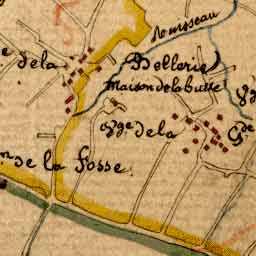 Ruisseau
ge de la
Bellerie
maison de la butte
Vge de la
Ge
n de la fosse